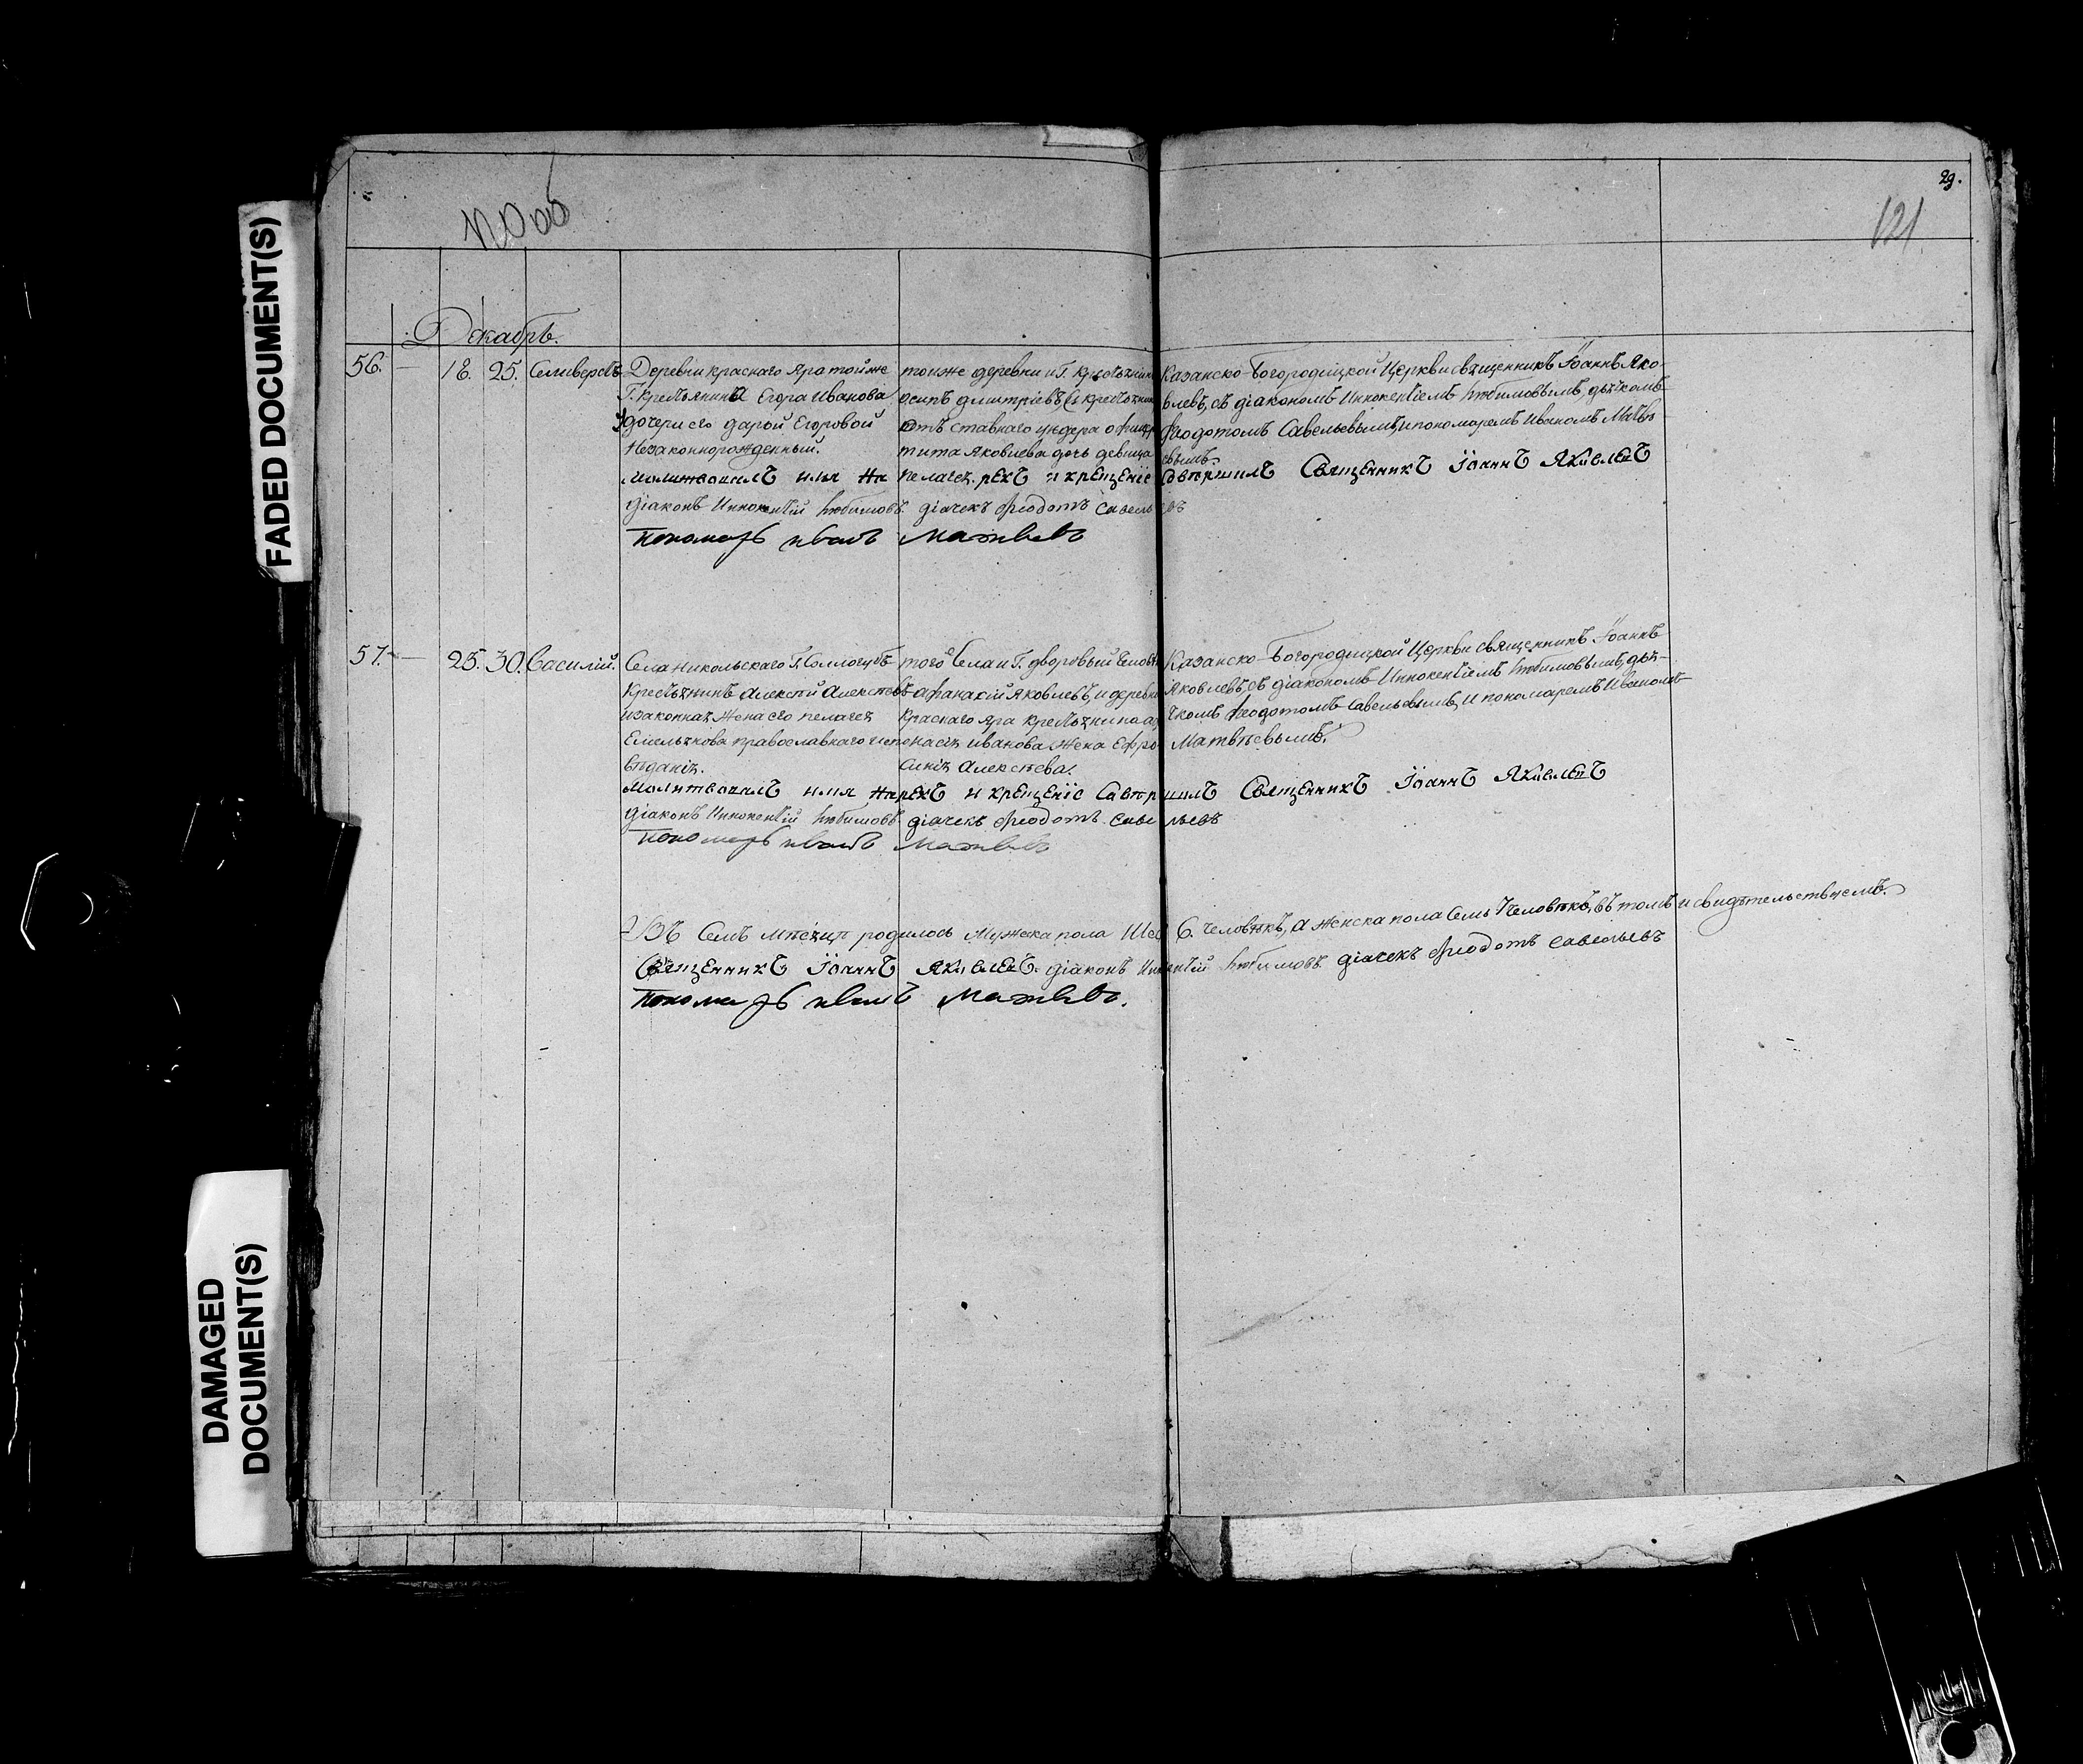 29.
121
Декабрь.
56. — 18. 25. Селиверстъ
Деревни краснаго Яра тойже
Г. крестьянина Егора Иванова
у дочери его дарьи Егоровой
Незаконнорожденный.
тойже деревни и Г. крестьянинъ
осипъ дмитріевъ, и
отъ ставнаго ундера офицера
тита Яковлева дочь девица
пелагея.
Казанско-Богородицкой Церкви священникъ Іоаннъ Яко-
влевъ, съ діакономъ Иннокентіемъ Любимовымъ, дьячкомъ
Феодотомъ Савельевымъ, и пономаремъ Иваномъ Матвѣ-
евымъ.
Молитвовалъ имя нарекъ и крещеніе совершилъ Священникъ Іоаннъ Яковлевъ
діаконъ Иннокентій Любимовъ. діачекъ Феодотъ Савельевъ
Пономарь иванъ Матвѣевъ
57. — 25. 30. Василій.
Села Никольскаго Г. Соллогубъ
крестьянинъ Алексѣй Алексѣевъ
и законная жена его пелагея
Емельянова православнаго испо
вѣданія.
того села и Г. дворовый человѣкъ
афанасій Яковлевъ, и деревни
Краснаго Яра крестьянина
Иванова жена Ефро
синія Алексѣева.
Казанско-Богородицкой Церкви священникъ Іоаннъ
Яковлевъ, съ діакономъ Иннокентіемъ Любимовымъ, дья-
чкомъ Феодотомъ Савельевымъ, и пономаремъ Иваномъ
Матвѣевымъ.
Молитвовалъ имя нарекъ и крещеніе совершилъ Священникъ Іоаннъ Яковлевъ
діаконъ Иннокентій Любимовъ. діачекъ Феодотъ Савельевъ
Пономарь иванъ Матвѣевъ
Въ семъ мѣсяцѣ родилось Мужеска пола 6. человѣкъ, а женска пола семь человѣкъ, въ томъ и свидѣтельствуемъ.
Священникъ Іоаннъ Яковлевъ. діаконъ Иннокентій Любимовъ діачекъ Феодотъ Савельевъ
Пономарь иванъ Матвѣевъ.
FADED DOCUMENT(S)
DAMAGED
DOCUMENT(S)